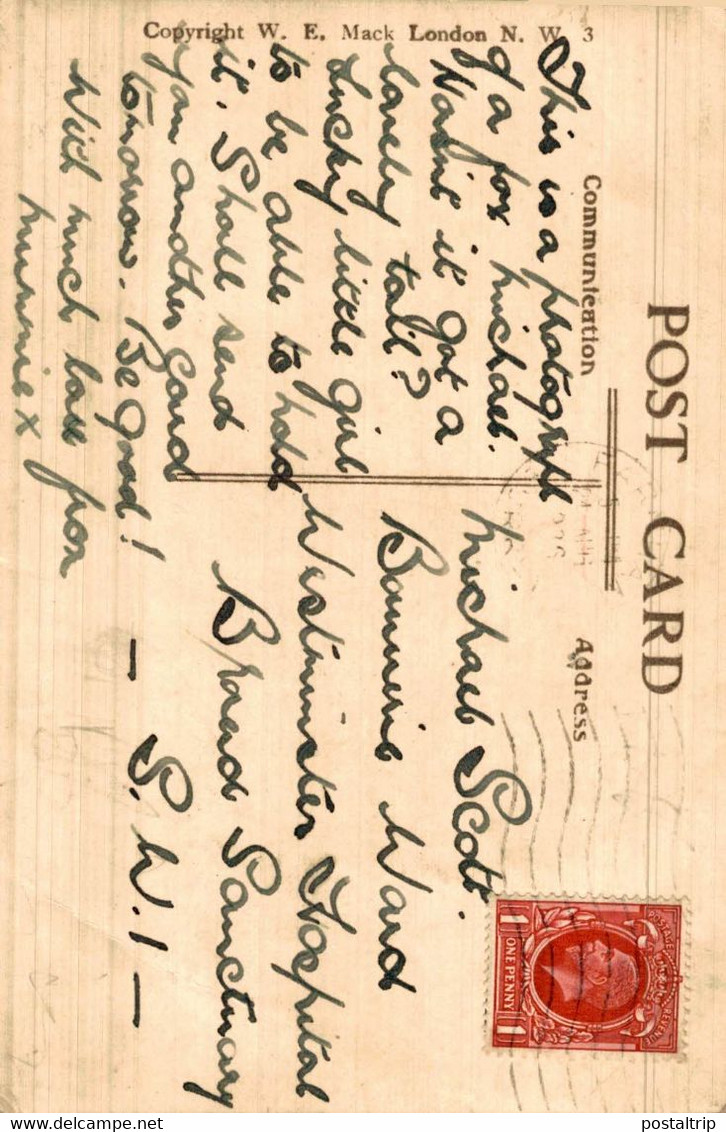 POST CARD
Communication
Address
This is a photograph
of a fox Michael.
Hasn't it got a
lovely tail?
Lucky little girl
to be able to hold
it. Shall send
you another card
tomorrow. Be good!
With much love from
Mummie x
Michael Scott.
Ward
Westminster Hospital
Broad Sanctuary
— S.W.1 —
Copyright W. E. Mack London N. W. 3
POSTAGE REVENUE
1 ONE PENNY 1
delcampe.net
postaltrip